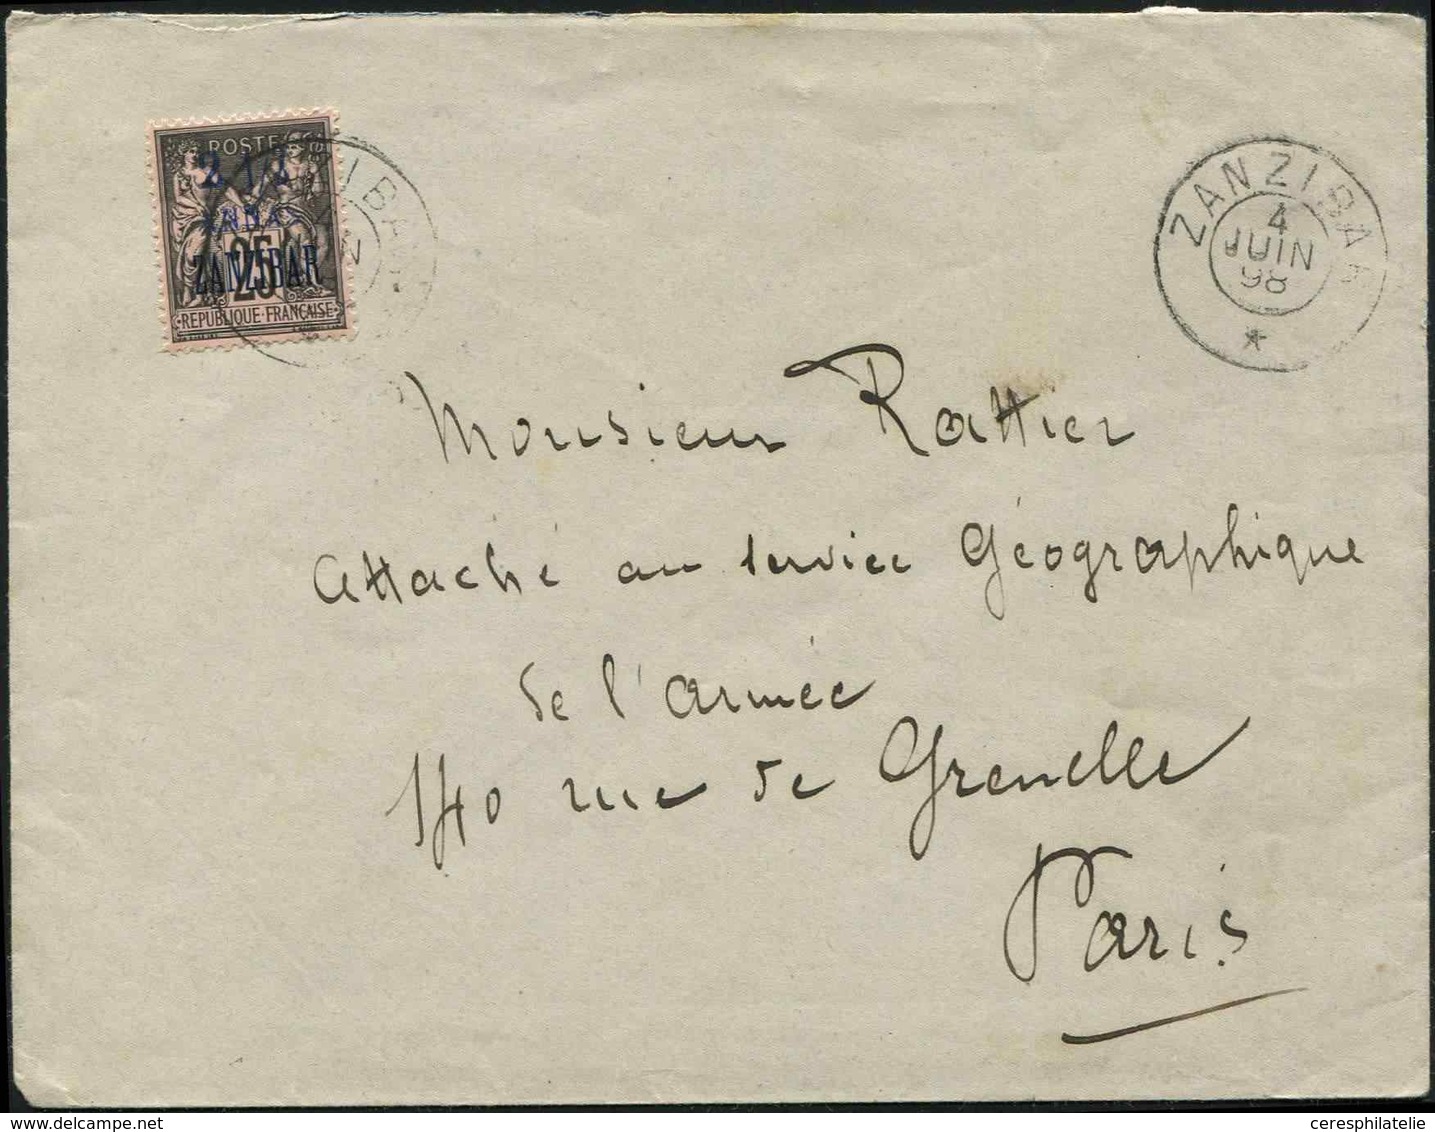 POSTE
2 1/2
ANNAS
25
ZANZIBAR
REPUBLIQUE FRANÇAISE
ZANZIBAR
4
JUIN
98
Monsieur Rattier
attaché au service Géographique
de l'armée
140 rue de Grenelle
Paris
ceresphilatelie